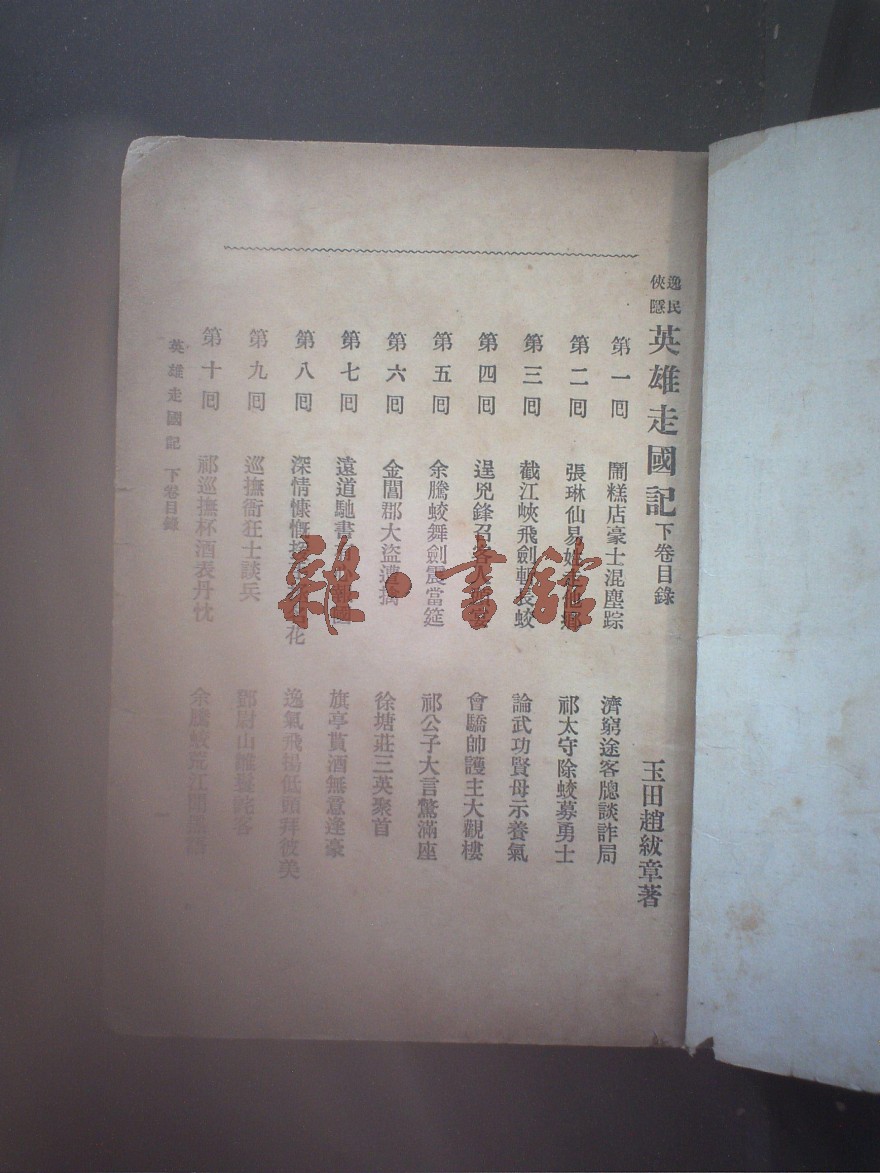 逸民俠隱 英雄走國記下卷目錄 玉田趙紱章著
第一回 鬧糕店豪士混塵踪 濟窮途客牕談詐局
第二回 張琳仙易姓走他鄉 祁太守除蛟募勇士
第三回 截江峽飛劍斬長蛟 論武功賢母示養氣
第四回 逞兇鋒召客大 會驕帥護主大觀樓
第五回 余騰蛟舞劍震當筵 祁公子大言驚滿座
第六回 金閶郡大盜遭擒 徐塘莊三英聚首
第七回 遠道馳書 旗亭貰酒無意逢豪
第八回 深情慷慨 花 逸氣飛揚低頭拜彼美
第九回 巡撫衙狂士談兵 鄧尉山 客
第十回 祁巡撫杯酒表丹忱 余騰蛟荒江
英雄走國記 下卷目錄
雜·書館